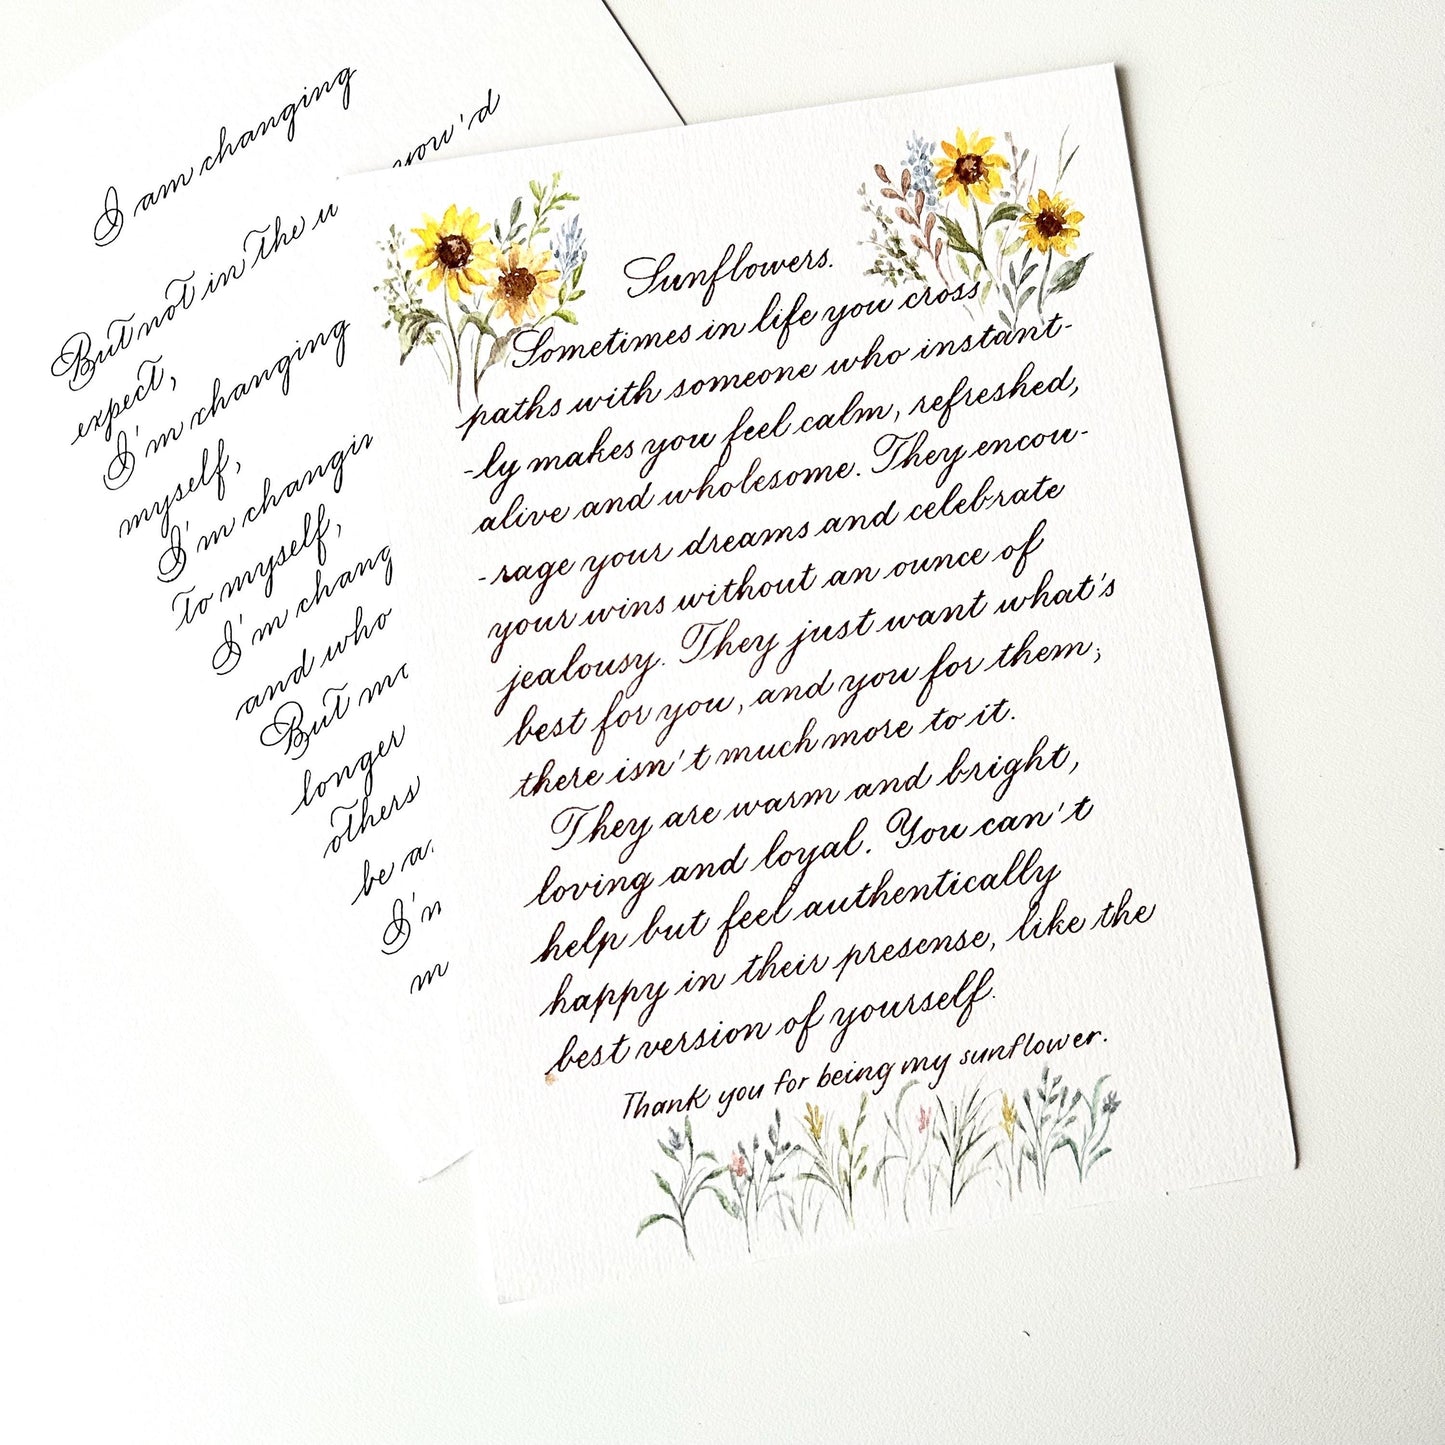 I am changing
But not in the
you'd
expect,
I'm changing
myself,
I'm
to myself,
I'm
and who
But
longer
others
be
Sunflowers.
Sometimes in life you cross
paths with someone who instant-
-ly makes you feel calm, refreshed,
alive and wholesome. They encou-
-rage your dreams and celebrate
your wins without an ounce of
jealousy. They just want what's
best for you, and you for them;
there isn't much more to it.
They are warm and bright,
loving and loyal. You can't
help but feel authentically
happy in their presense, like the
best version of yourself.
Thank you for being my sunflower.